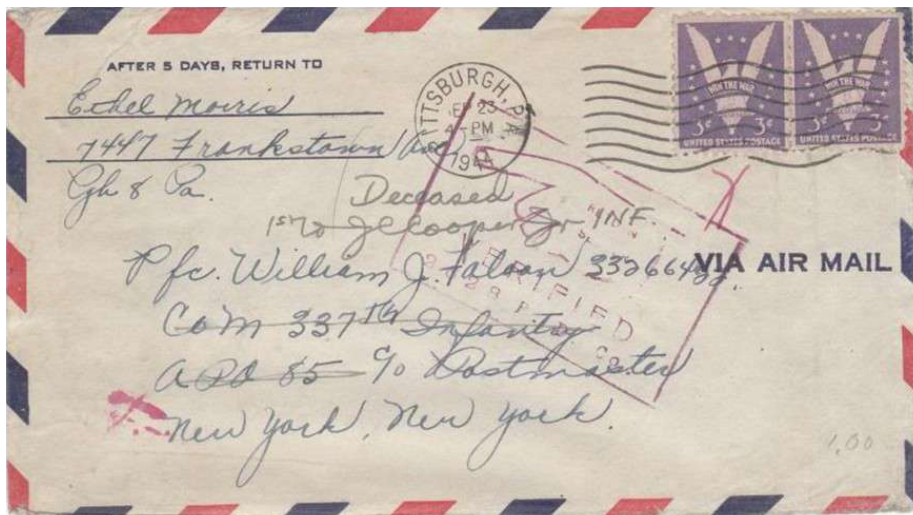 AFTER 5 DAYS, RETURN TO
Ethel Morris
7447 Frankstown Ave
Pgh 8 Pa.
PITTSBURGH, PA
SEP 23
PM
194
WIN THE WAR
3¢ 3¢
UNITED STATES POSTAGE
WIN THE WAR
3¢ 3¢
UNITED STATES POSTAGE
Deceased
1st Lt J C Cooper Jr INF.
Pfc. William J. Faloon
VIA AIR MAIL
VERIFIED
Co M 337th Infantry
APO 85 c/o Postmaster
New York, New York.
1.00